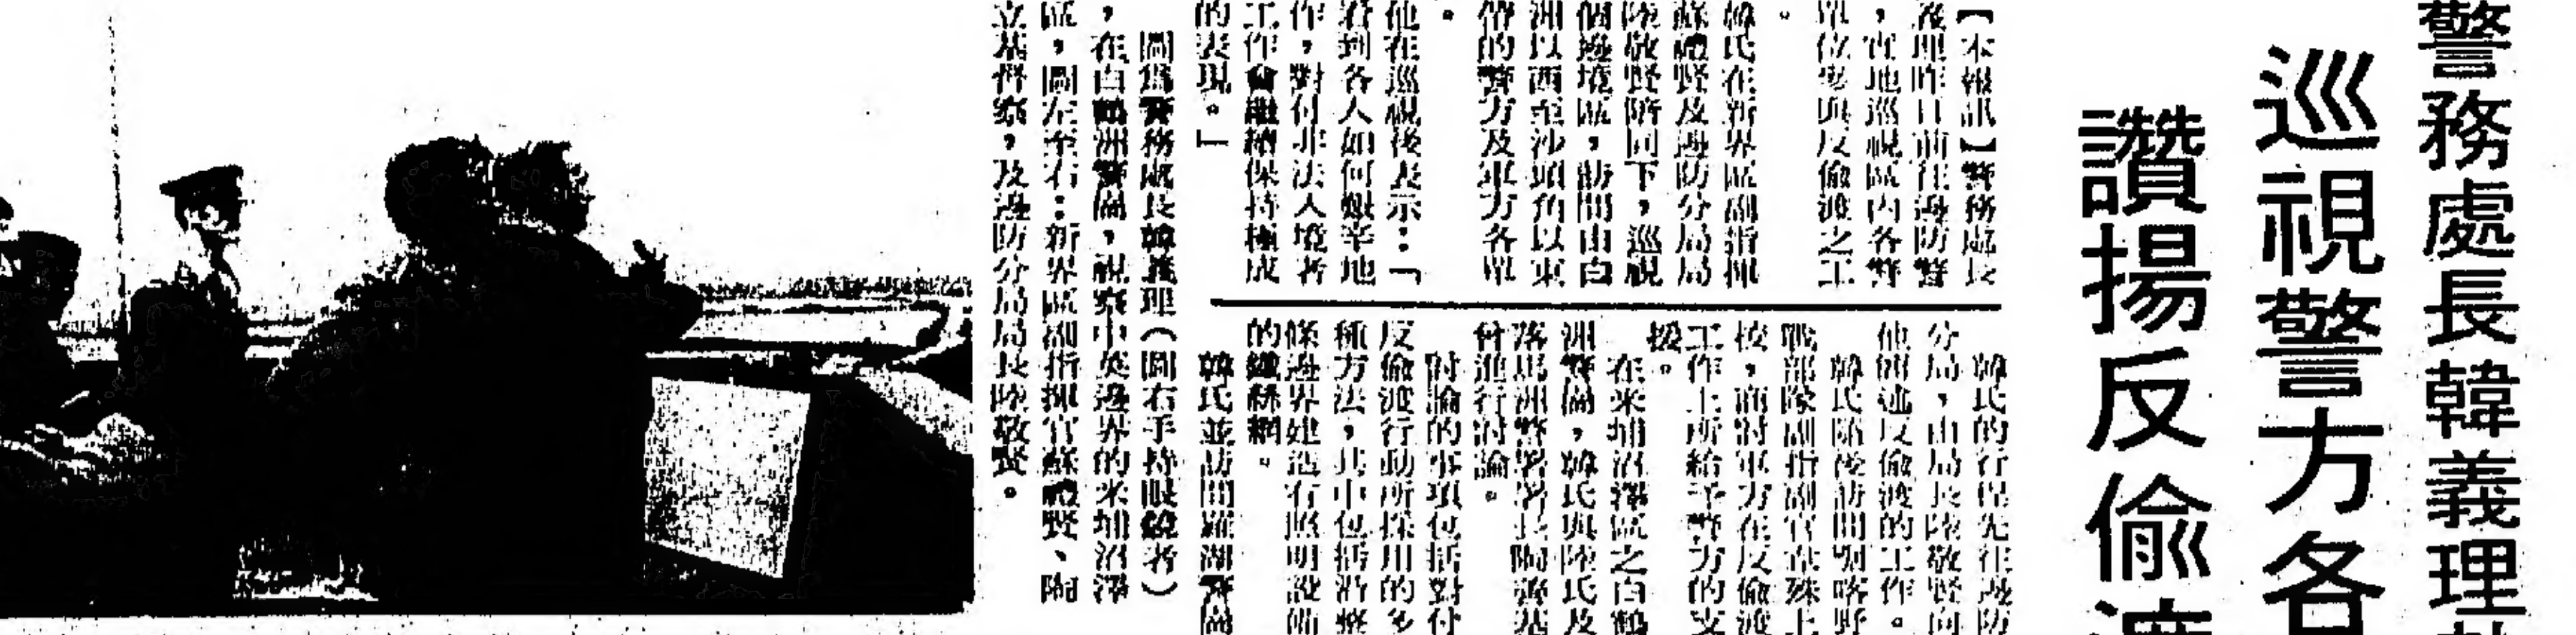 警務處長韓義理
巡視警方各
讚揚反偷渡
【本報訊】警務處長
義理昨日前往邊防警
，實地巡視區內各警
單位參與反偷渡之工
。
韓氏在新界區副指揮
蘇禮賢及邊防分局局
陸敬賢陪同下，巡視
個邊境區，訪問由白
洲以西至沙頭角以東
帶的警方及軍方各單
。
他在巡視後表示：「
看到各人如何艱辛地
作，對付非法入境者
工作會繼續保持極成
的表現。」
韓氏的行程先往邊防
分局，由局長陸敬賢向
他闡述反偷渡的工作。
韓氏隨後訪問啹喀野
戰部隊副指副官韋殊上
校，商討軍方在反偷渡
工作上所給予警方的支
援。
在米埔沼澤區之白鶴
洲警崗，韓氏與陸氏及
落馬洲警署署長陶蔡基
督進行討論。
討論的事項包括對付
反偷渡行動所採用的多
種方法，其中包括沿整
條邊界建造有照明設備
的鐵絲網。
韓氏並訪問羅湖警崗
圖為警務處長韓義理（圖右手持眼鏡者）
，在白鶴洲警崗，視察中英邊界的米埔沼澤
區，圖左至右：新界區副指揮官蘇禮賢、陶
立基督察，及邊防分局局長陸敬賢。